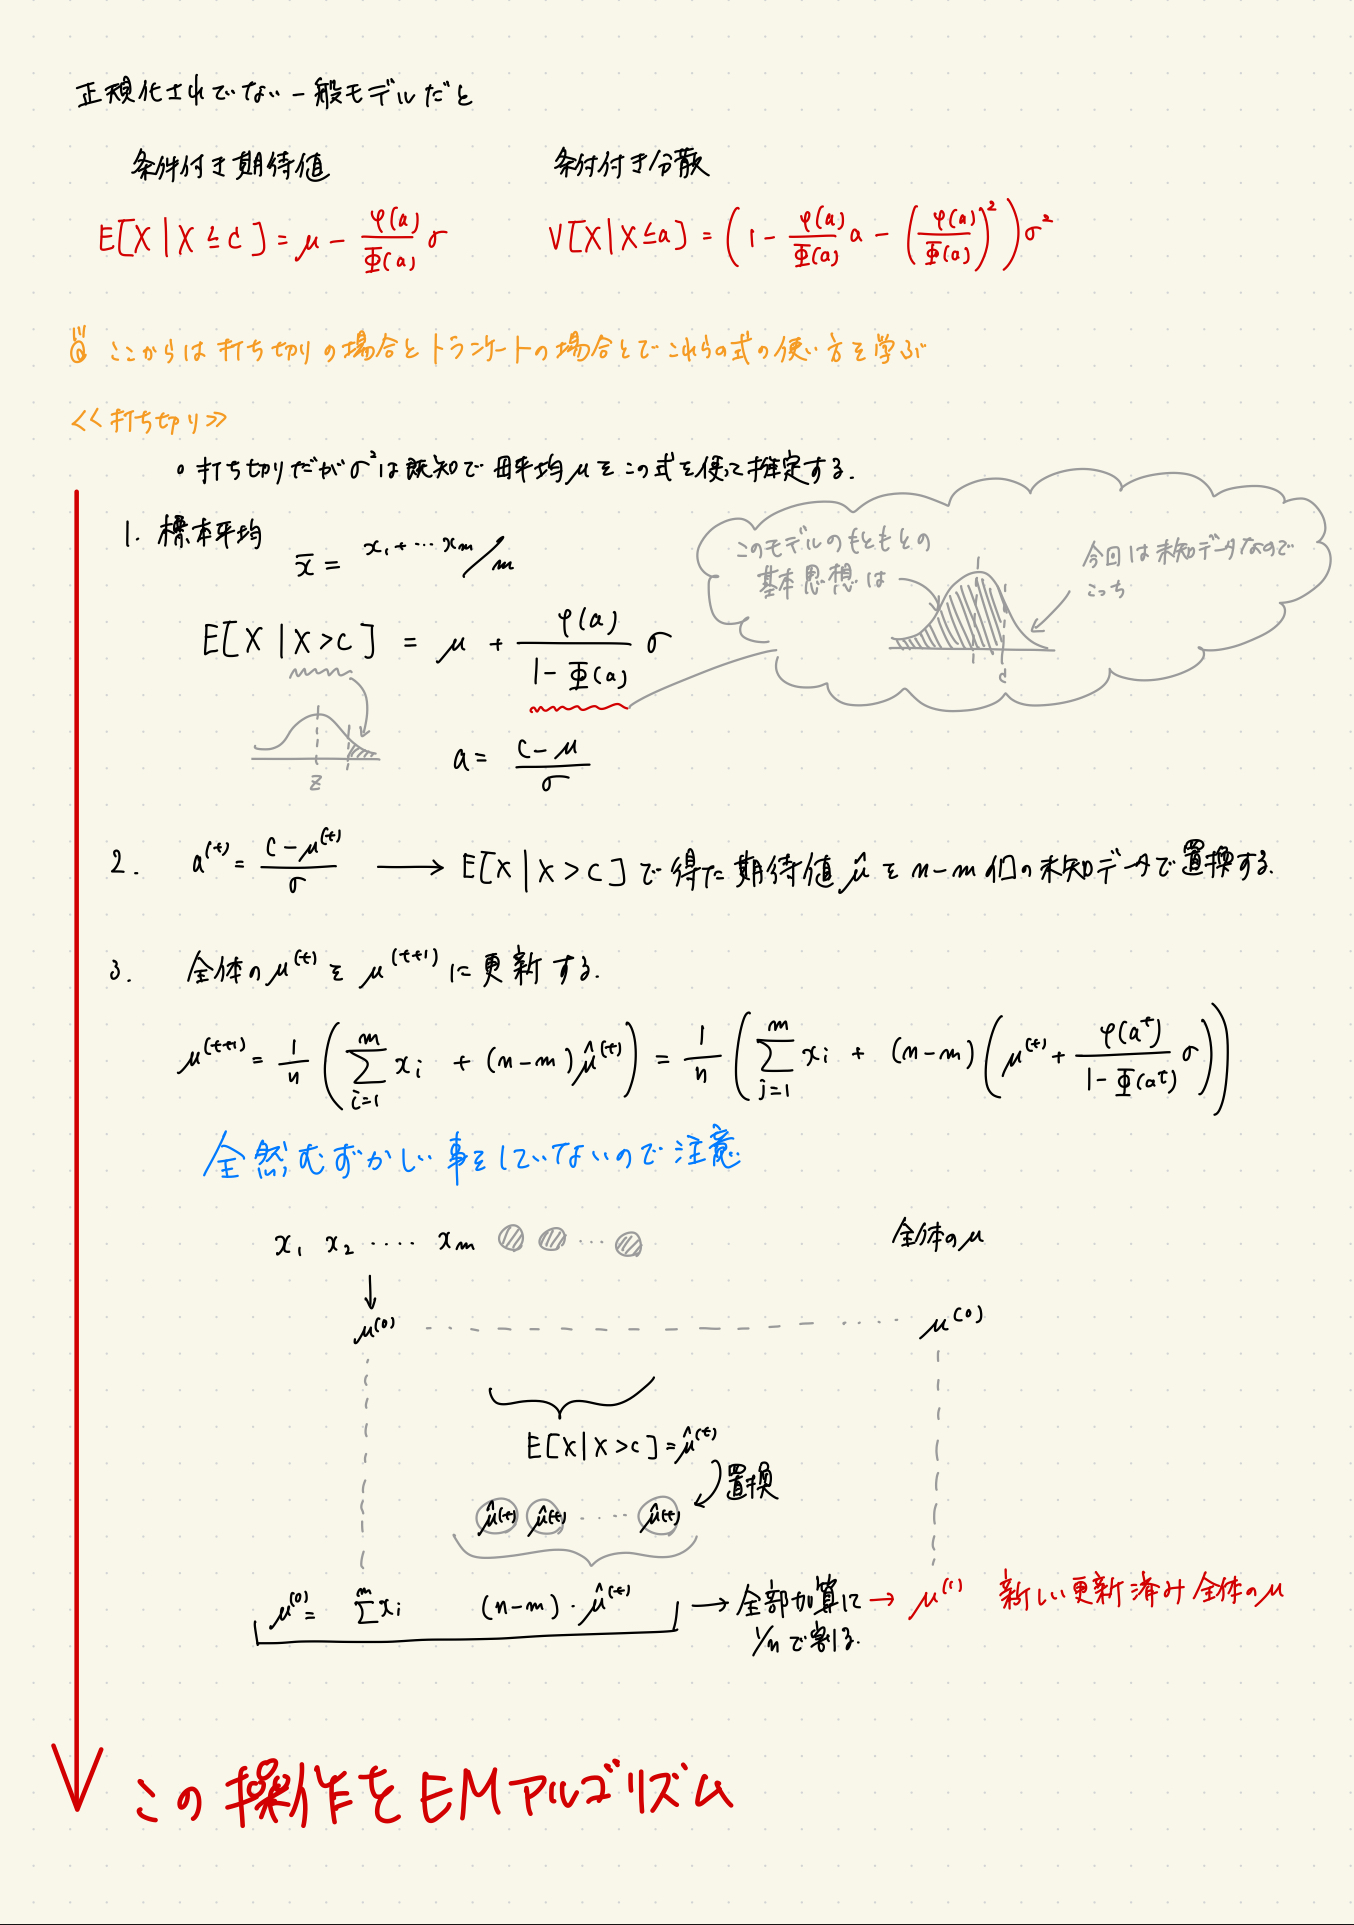 正規化されていない一般モデルだと
条件付き期待値
条付付き分散
E[X|X≦c]=μ-φ(a)/Φ(a)σ
V[X|X≦a]=(1-φ(a)/Φ(a)a-(φ(a)/Φ(a))²)σ²
ここからは打ち切りの場合とトランケートの場合とでこれらの式の使い方を学ぶ
<<打ち切り>>
○打ち切りだがσ²は既知で母平均μをこの式を使って推定する.
1. 標本平均
x̄=x₁+…xₘ/m
このモデルのもともとの
基本思想は
今回は未知データなので
こっち
c
E[X|X>c]=μ+φ(a)/(1-Φ(a))σ
z
a=(c-μ)/σ
2. a⁽ᵗ⁾=(c-μ⁽ᵗ⁾)/σ → E[X|X>c]で得た期待値μ̂をn-m個の未知データで置換する.
3. 全体のμ⁽ᵗ⁾をμ⁽ᵗ⁺¹⁾に更新する.
μ⁽ᵗ⁺¹⁾=1/n(Σᵢ₌₁ᵐ xᵢ+(n-m)μ̂⁽ᵗ⁾)=1/n(Σⱼ₌₁ᵐ xᵢ+(n-m)(μ⁽ᵗ⁾+φ(aᵗ)/(1-Φ(aᵗ))σ))
全然むずかしい事をしていないので注意
x₁ x₂ ‥‥ xₘ …
全体のμ
μ⁽⁰⁾
μ⁽⁰⁾
E[X|X>c]=μ̂⁽ᵗ⁾
置換
μ̂⁽ᵗ⁾ μ̂⁽ᵗ⁾ ‥‥ μ̂⁽ᵗ⁾
μ⁽⁰⁾= Σᵐxᵢ (n-m)·μ̂⁽ᵗ⁾ → 全部加算に → μ⁽¹⁾ 新しい更新済み全体のμ
1/nで割る.
この操作をEMアルゴリズム